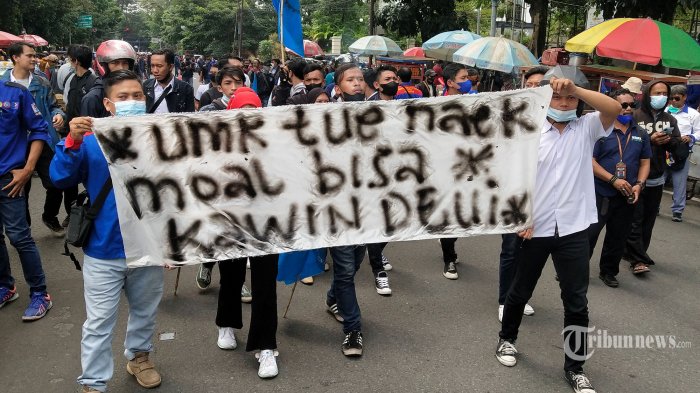 * UMK tue naek
moal bisa *
KAWIN DEUI *
Tribunnews.com